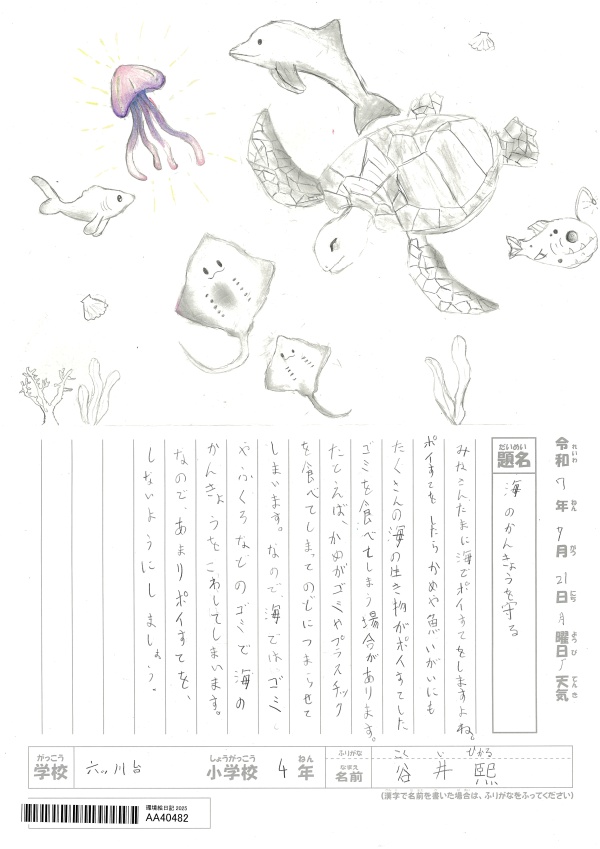 令和7年7月21日月曜日 天気
れいわ ねん がつ にち ようび てんき
だいめい
題名 海のかんきょうを守る
みなさんたまに海でポイすてをしますよね。
ポイすてをしたらかめや魚いがいにも
たくさんの海の生き物がポイすてした
ゴミを食べてしまう場合があります。
たとえば、かめがゴミやプラスチック
を食べてしまってのどにつまらせて
しまいます。なので、海では、ゴミ
やふくろなどのゴミで海の
かんきょうをこわしてしまいます。
なので、あまりポイすてを、
しないようにしましょう。
がっこう しょうがっこう ねん ふりがな
学校 六ッ川台 小学校 4年 なまえ 名前 谷井 熙
(漢字で名前を書いた場合は、ふりがなをふってください)
環境絵日記 2025
AA40482